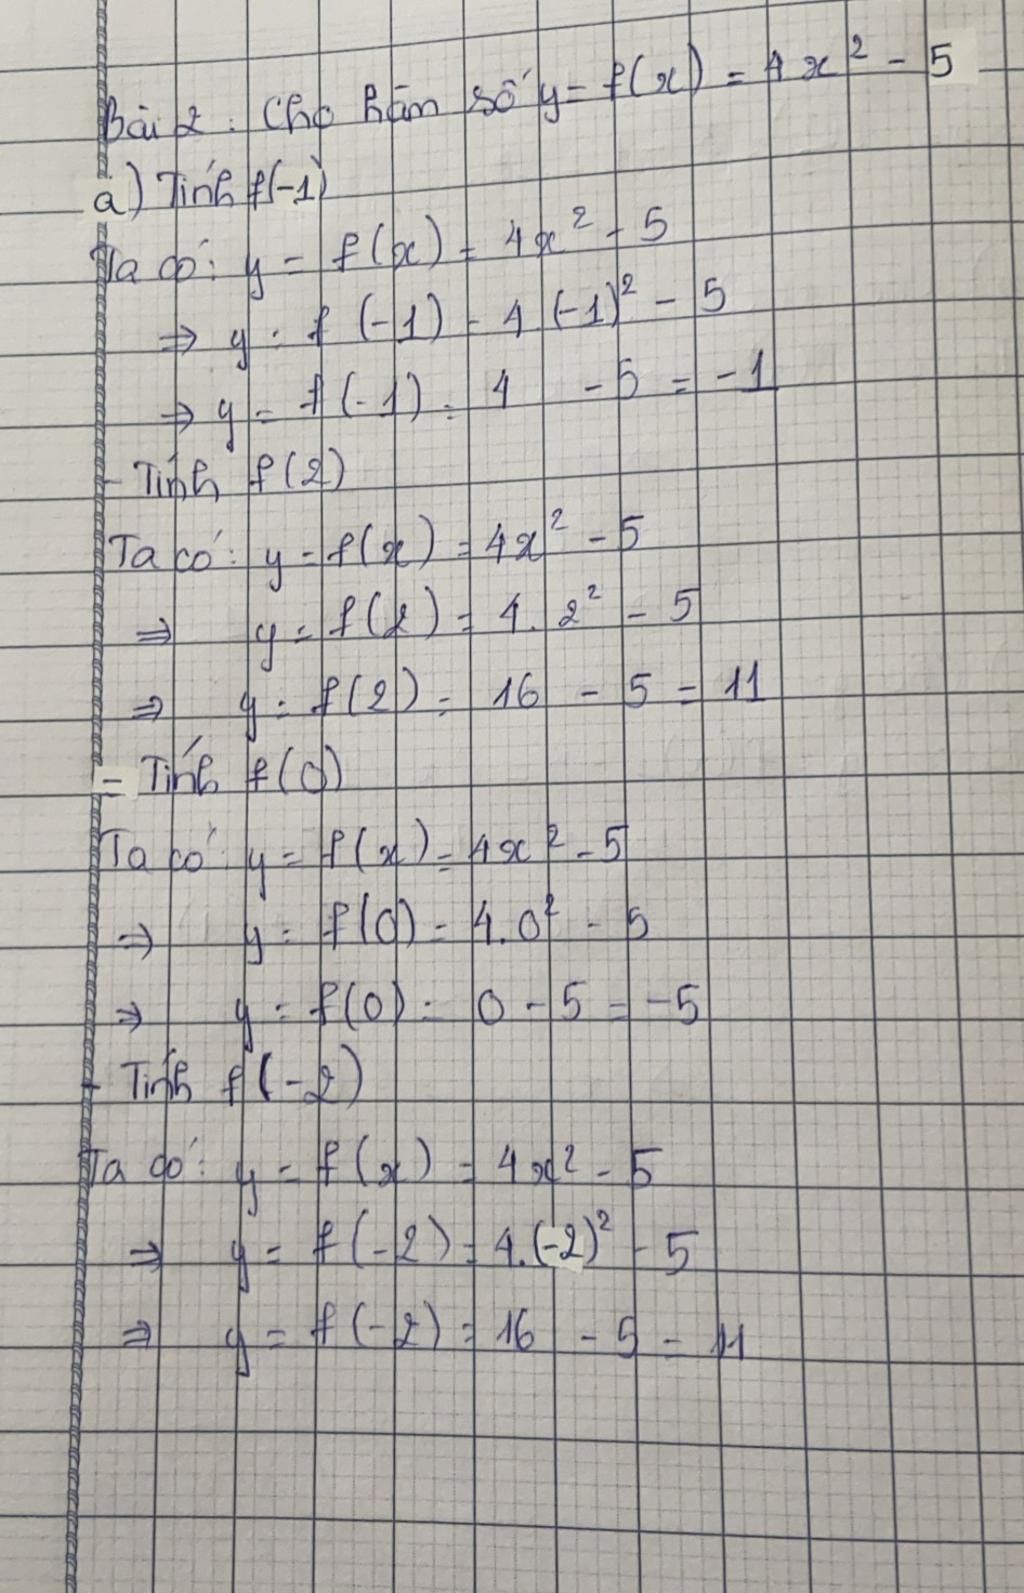 Bài 2: Cho hàm số y = f(x) = 4x² - 5
a) Tính f(-1)
Ta có: y = f(x) = 4x² - 5
⇒ y = f(-1) = 4(-1)² - 5
⇒ y = f(-1) = 4 - 5 = -1
- Tính f(2)
Ta có: y = f(x) = 4x² - 5
⇒ y = f(2) = 4.2² - 5
⇒ y = f(2) = 16 - 5 = 11
- Tính f(0)
Ta có y = f(x) = 4x² - 5
⇒ y = f(0) = 4.0² - 5
⇒ y = f(0) = 0 - 5 = -5
- Tính f(-2)
Ta có: y = f(x) = 4x² - 5
⇒ y = f(-2) = 4.(-2)² - 5
⇒ y = f(-2) = 16 - 5 = 11